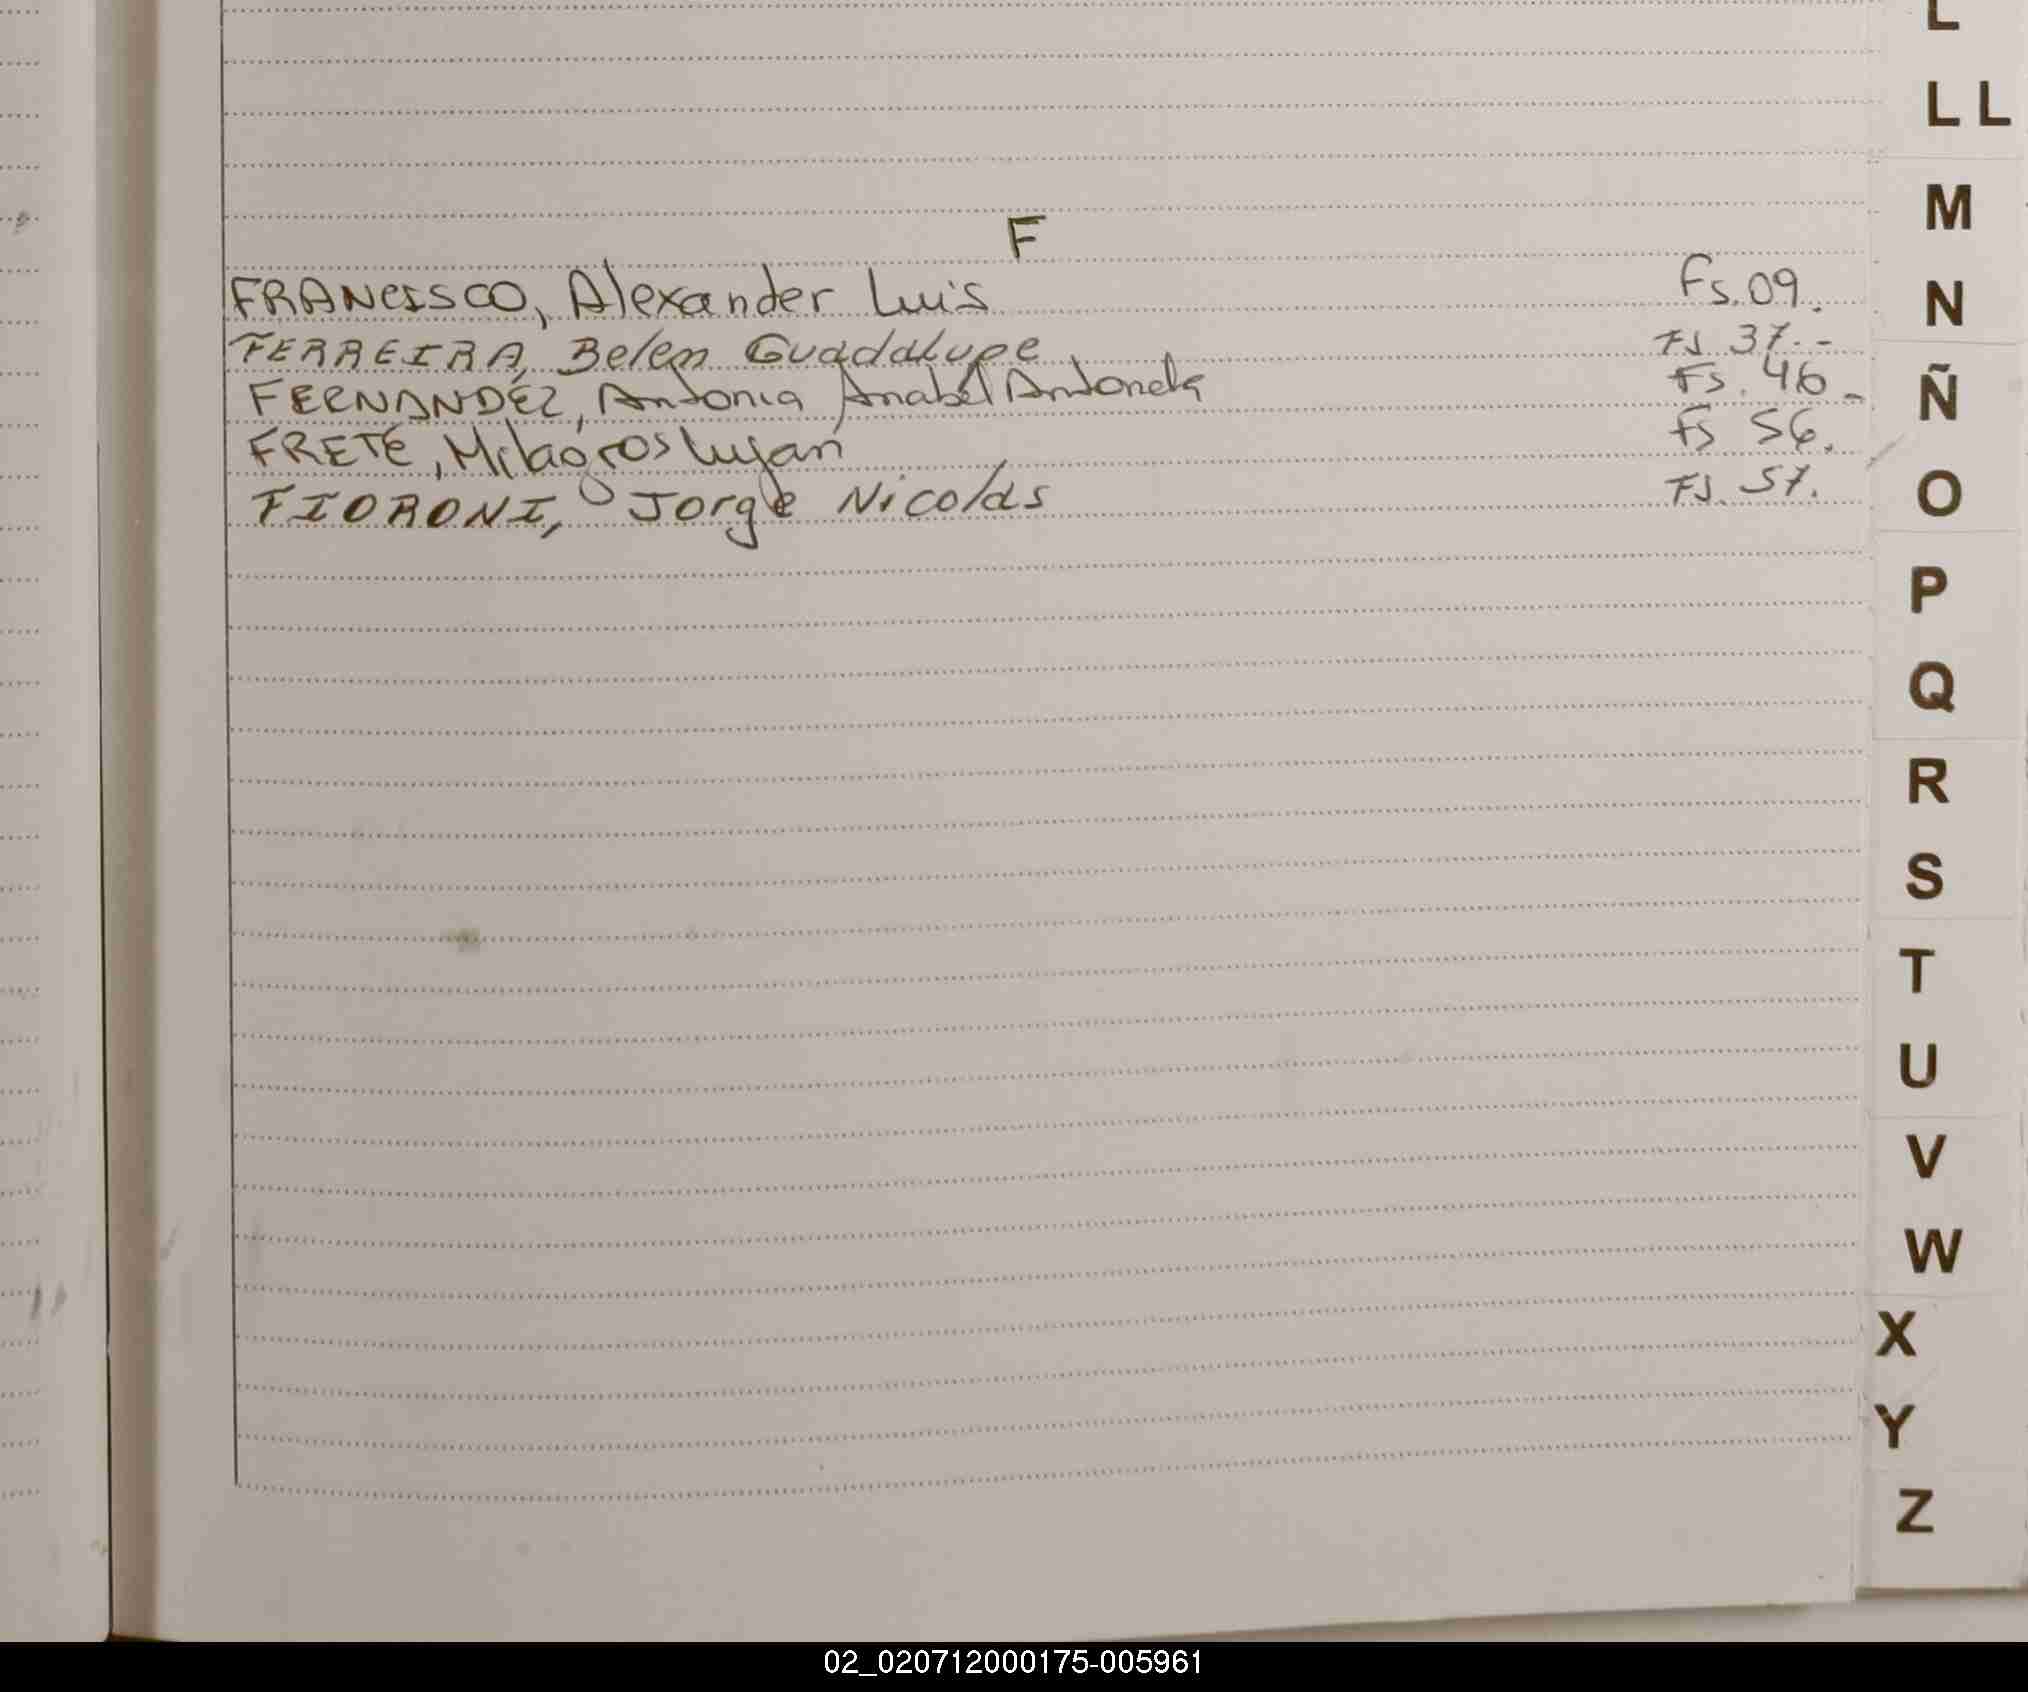 F
FRANCISCO, Alexander Luis Fs. 09.
FERREIRA, Belen Guadalupe Fs 37.-
FERNANDEZ, Antonia Anabel Antonela Fs. 46-
FRETE, Milagros Lujan Fs 56.
FIORONI, Jorge Nicolas Fs. 57.
L
LL
M
N
Ñ
O
P
Q
R
S
T
U
V
W
X
Y
Z
02_020712000175-005961